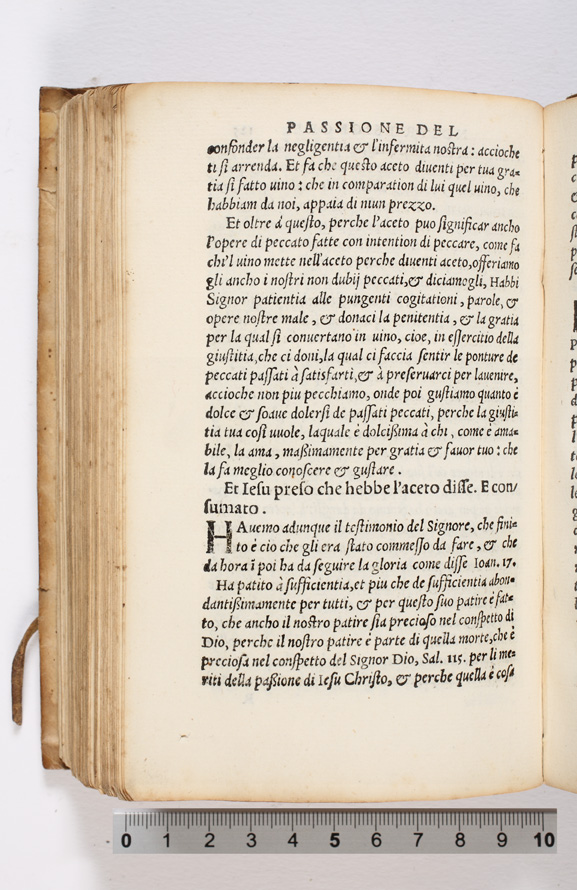 PASSIONE DEL
confonder la negligentia & l'infermita nostra : accioche
ti si arrenda. Et fa che questo aceto diuenti per tua gra=
tia si fatto uino : che in comparation di lui quel uino, che
habbiam da noi, appaia di niun prezzo.
Et oltre à questo, perche l'aceto puo significar ancho
l'opere di peccato fatte con intention di peccare, come fa
chi'l uino mette nell'aceto perche diuenti aceto, offeriamo
gli ancho i nostri non dubij peccati, & diciamogli, Habbi
Signor patientia alle pungenti cogitationi, parole, &
opere nostre male, & donaci la penitentia, & la gratia
per la qual si conuertano in uino, cioe, in essercitio della
giustitia, che ci doni, la qual ci faccia sentir le ponture de
peccati passati à satisfarti, & à preseruarci per lauenire,
accioche non piu pecchiamo, onde poi gustiamo quanto è
dolce & soaue dolersi de passati peccati, perche la giusti=
tia tua cosi uuole, laquale è dolcißima à chi, come è ama=
bile, la ama, maßimamente per gratia & fauor tuo : che
la fa meglio conoscere & gustare.
Et Iesu preso che hebbe l'aceto disse. E con/
sumato.
HAuemo adunque il testimonio del Signore, che fini=
to è cio che gli era stato commesso da fare, & che
da hora ī poi ha da seguire la gloria come disse Ioan. 17.
Ha patito à sufficientia, et piu che de sufficientia abon=
dantißimamente per tutti, & per questo suo patire è fat=
to, che ancho il nostro patire sia precioso nel conspetto di
Dio, perche il nostro patire è parte di quella morte, che è
preciosa nel conspetto del Signor Dio, Sal. 115. per li me=
riti della paßione di Iesu Christo, & perche quella è cosa
0 1 2 3 4 5 6 7 8 9 10